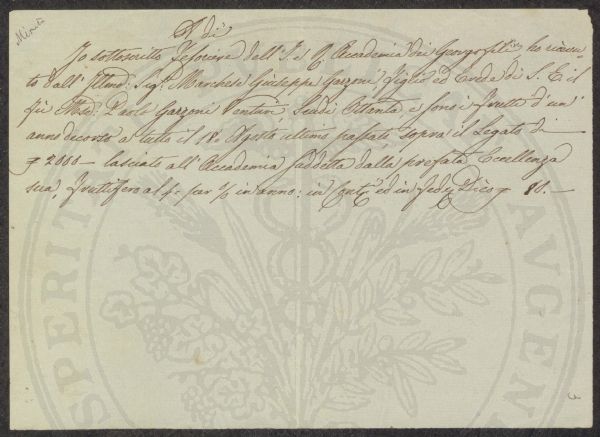 Minuta
A di
Io sottoscritto Tesoriere dell' I. e R. Accademia dei Georgofili ho ricevu-
to dall' Illmo. Sigr. Marchese Giuseppe Garzoni figlio ed Erede di S. E. il
fù Paolo Garzoni Venturi, Scudi Ottanta, e sono i frutti d'un'
anno decorso a tutto il 18. Agosto ultimo passato sopra il Legato di
2000 - lasciato all' Accademia suddetta dalla prefata Eccellenza
sua, fruttifero al 4. per % in anno: in cont.i ed in fede Dico 80. -
PROSPERITATI AUGENDAE